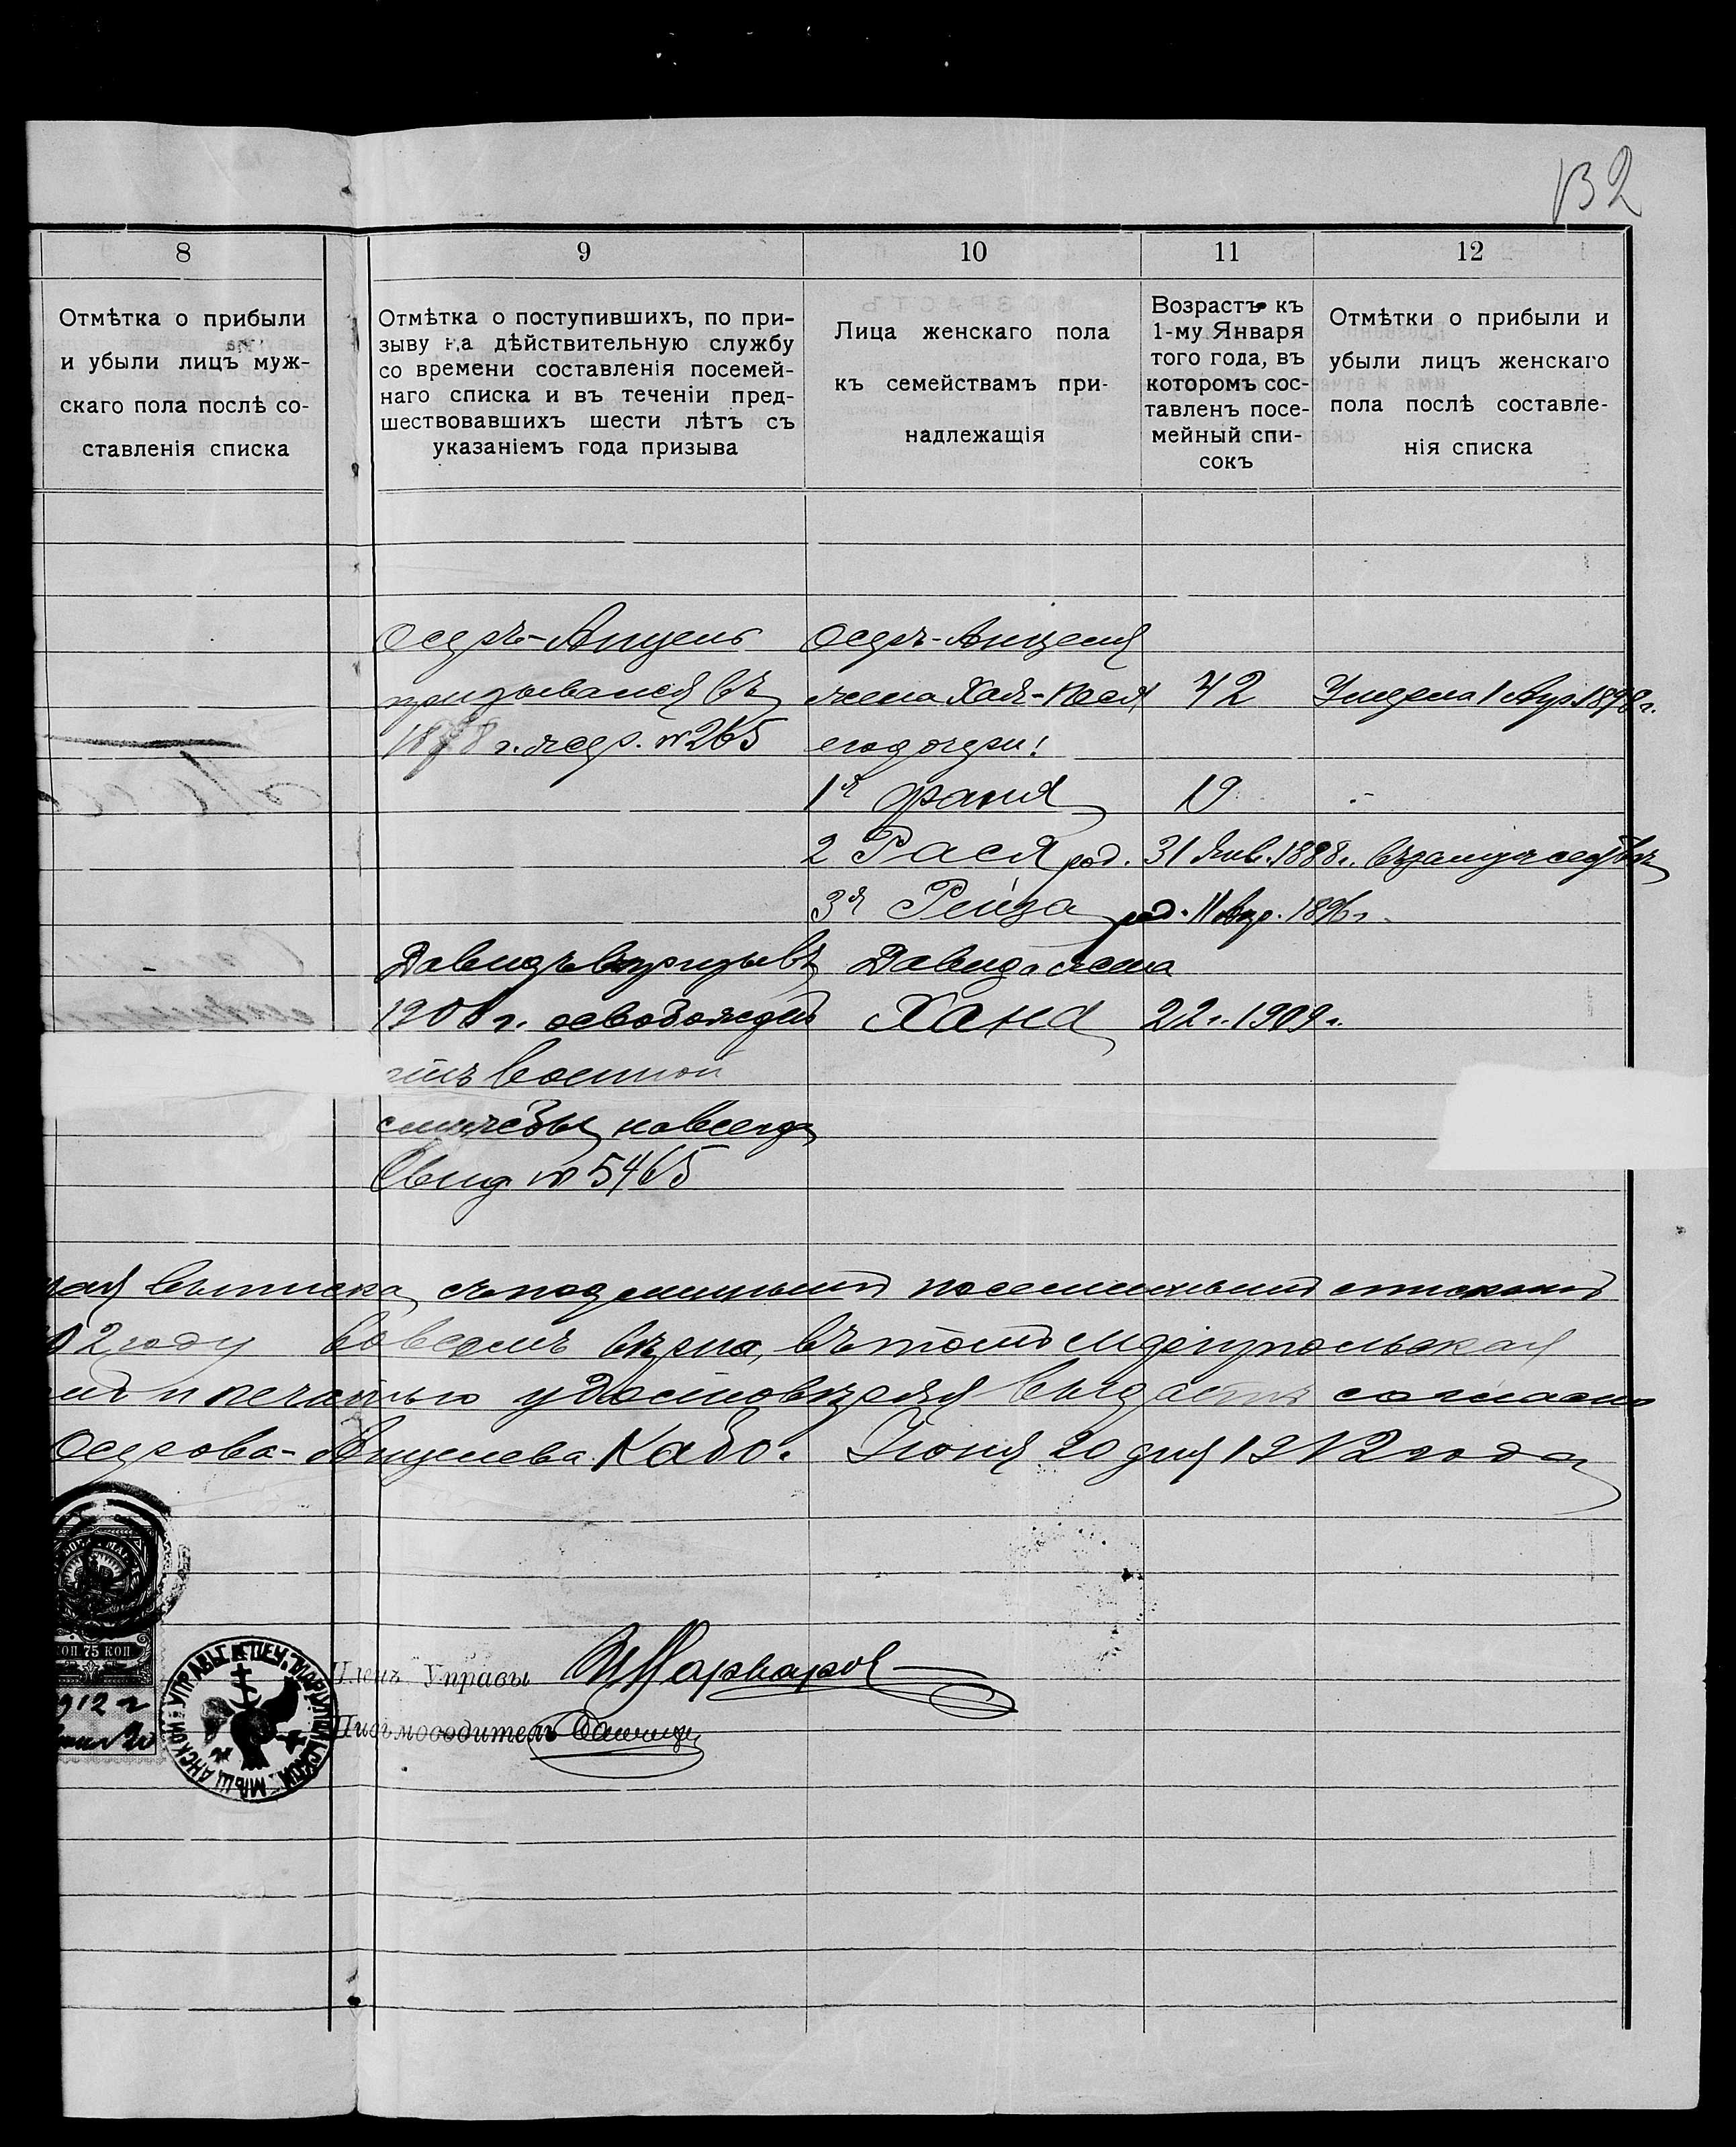 132
8
9
10
11
12
Отмѣтка о прибыли
и убыли лицъ муж-
скаго пола послѣ со-
ставленія списка
Отмѣтка о поступившихъ, по при-
зыву на дѣйствительную службу
со времени составленія посемей-
наго списка и въ теченіи пред-
шествовавшихъ шести лѣтъ съ
указаніемъ года призыва
Лица женскаго пола
къ семействамъ при-
надлежащія
Возрастъ къ
1-му Января
того года, въ
которомъ сос-
тавленъ посе-
мейный спи-
сокъ
Отмѣтки о прибыли и
убыли лицъ женскаго
пола послѣ составле-
нія списка
Осеръ-Анцель
призывался въ
г. жер. № 265
Осеръ-Анцеля
жена Хая-Песя 42 Умерла 1 Апр. 1898 г.
его дочери:
1я Фаня 19
2 Рася род. 31 Янв. 1888 г. въ замужествѣ
3я Рейза род. 11 Апр. 1896 г.
Давидъ въ призывъ
1908 г. освобожденъ
отъ военной
службы навсегда
Свид. № 5465
Давида жена
Хана 22 г. 1909 г.
выписка съ подлиннымъ посемейнымъ спискомъ
2 году во всемъ вѣрна, въ томъ Мариупольская
и печатью удостовѣряя выдаетъ согласно
Осерова-Анцелева Кабо. Іюня 20 дня 1912 года
75 КОП
912 г
Членъ Управы
Письмоводитель